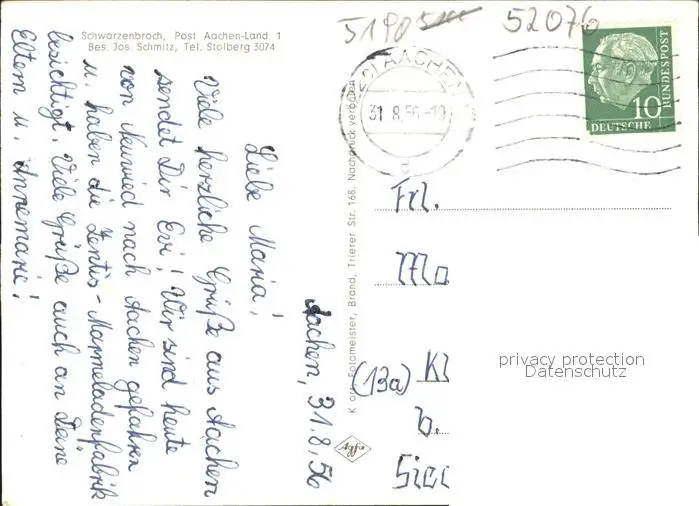 Schwarzenbroch, Post Aachen-Land 1
Bes. Jos. Schmitz, Tel. Stolberg 3074
Aachen, 31.8.56
Liebe Maria!
Viele herzliche Grüße aus Aachen
sendet Dir Evi! Wir sind heute
von Neuwied nach Aachen gefahren
u. haben die Zentis-Marmeladenfabrik
besichtigt. Viele Grüße auch an Deine
Eltern u. Annemarie!
Foto-Fotomeister, Brand, Trierer Str. 168. Nachdruck verboten
51905
52076
AACHEN
31.8.56-19
10
DEUTSCHE
BUNDESPOST
Frl.
Ma
(13a) Kl
b.
privacy protection
Datenschutz